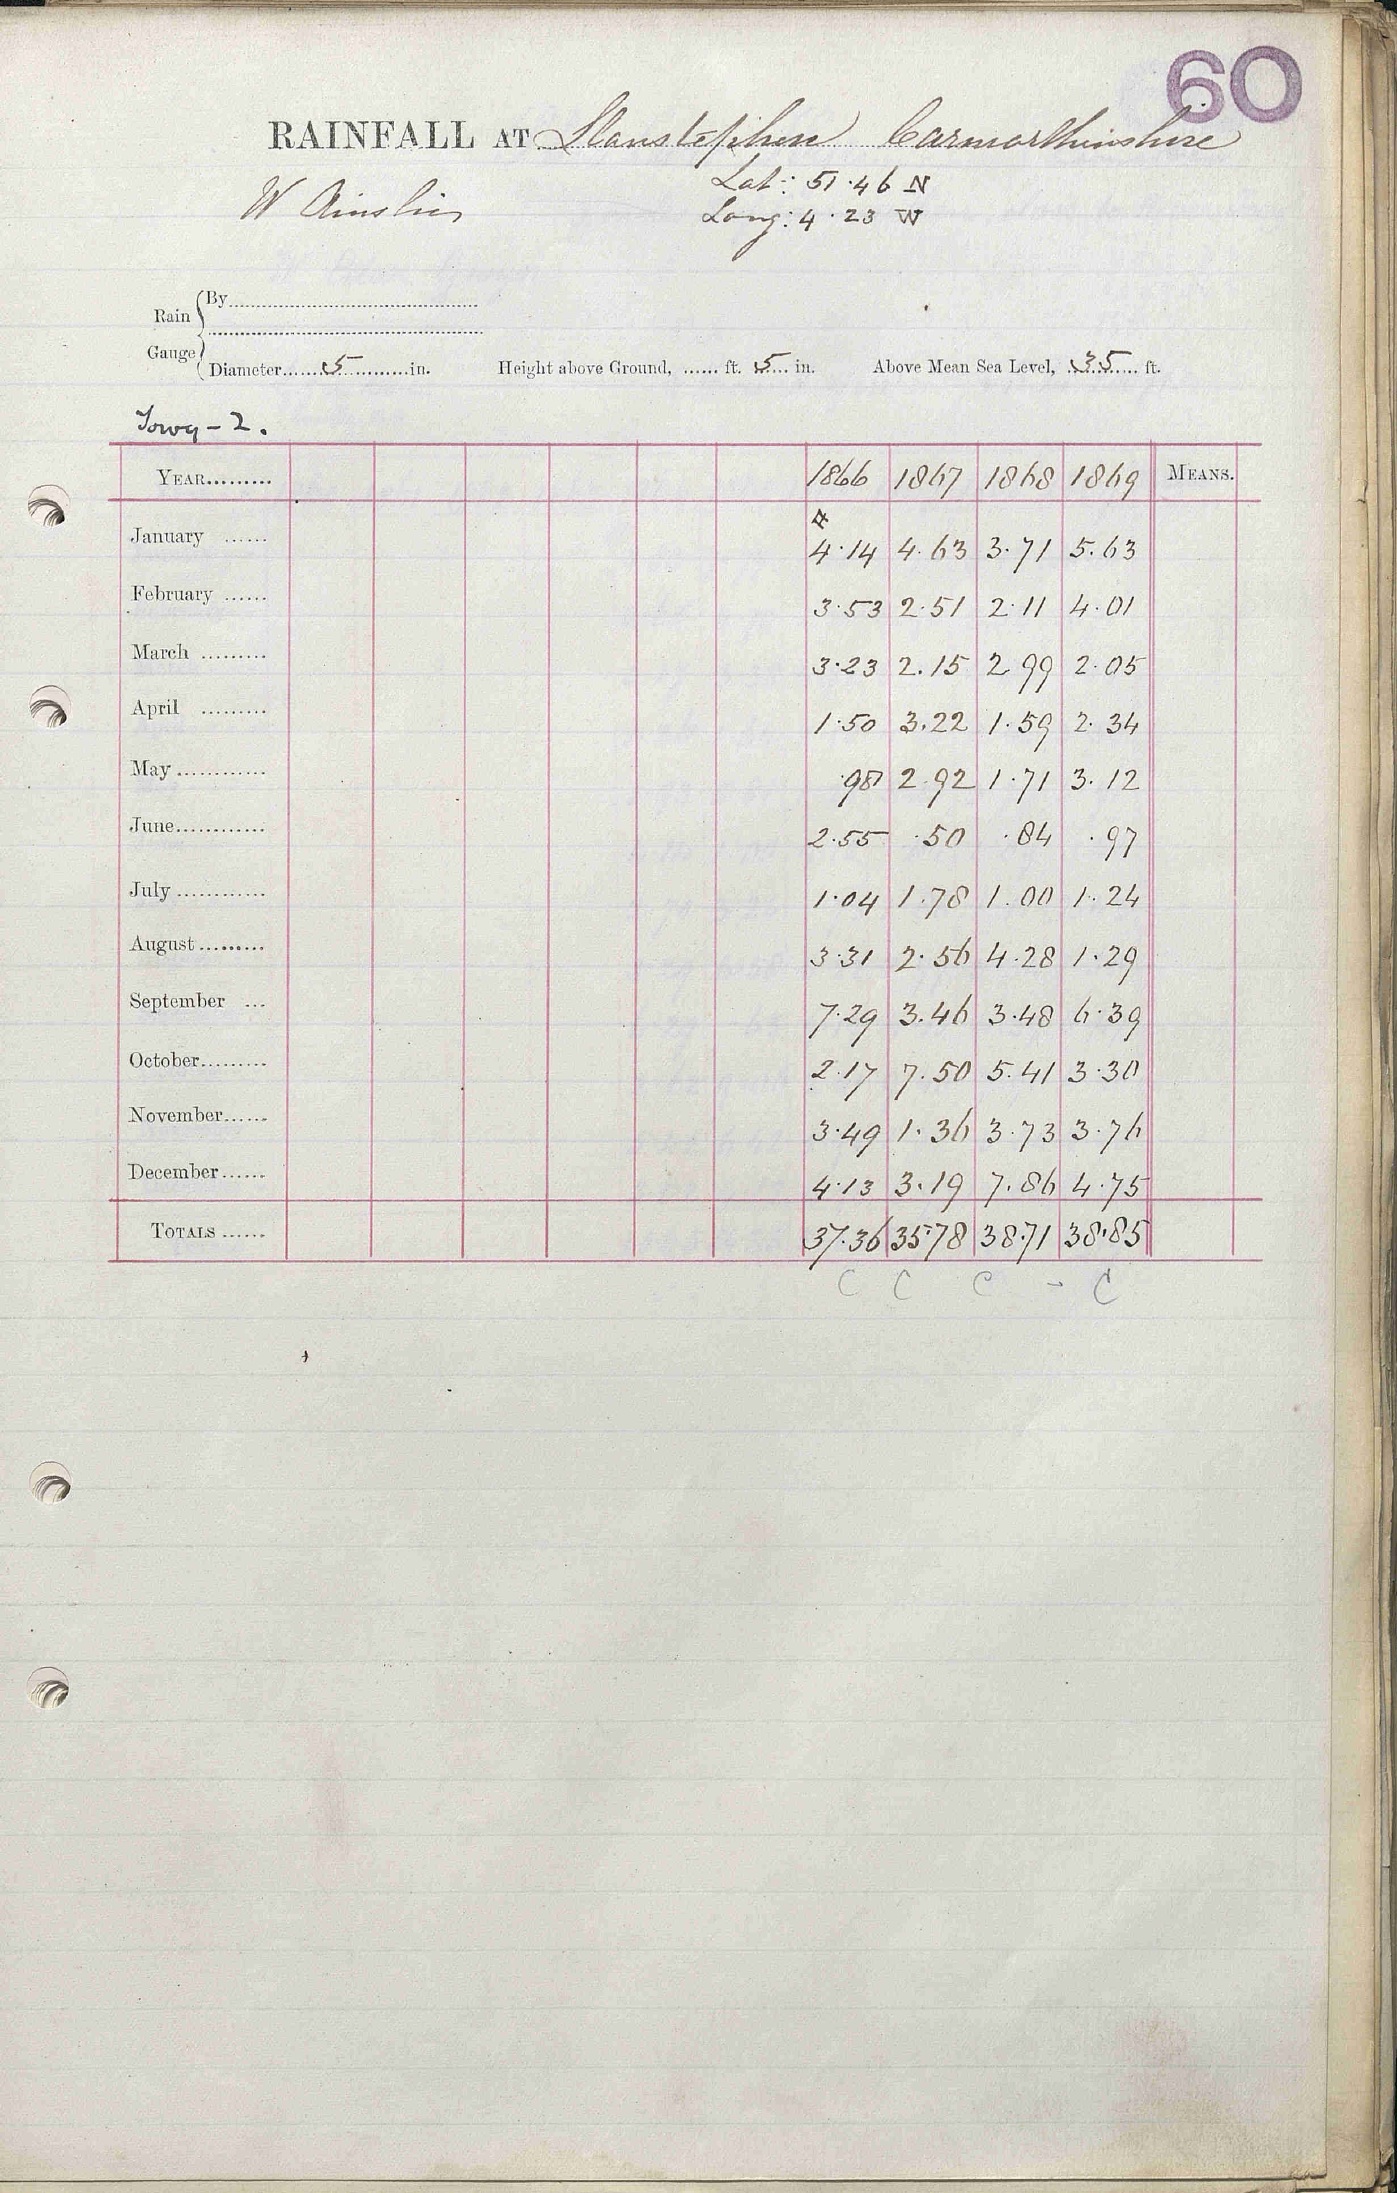 60
RAINFALL AT Llanstephen Carmarthenshire
Lat: 51.46 N
W Ainslie Long: 4.23 W
Rain Gauge
By
Diameter...... 5 ......in. Height above Ground, ...... ft. 5 in. Above Mean Sea Level, 35 ft.
Towy - 2.
YEAR......... 1866 1867 1868 1869 MEANS.
January ...... 4.14 4.63 3.71 5.63
February ...... 3.53 2.51 2.11 4.01
March ......... 3.23 2.15 2.99 2.05
April ......... 1.50 3.22 1.59 2.34
May............ .98 2.92 1.71 3.12
June............ 2.55 .50 .84 .97
July ............ 1.04 1.78 1.00 1.24
August......... 3.31 2.56 4.28 1.29
September ... 7.29 3.46 3.48 6.39
October......... 2.17 7.50 5.41 3.30
November...... 3.49 1.36 3.73 3.76
December...... 4.13 3.19 7.86 4.75
TOTALS ...... 37.36 35.78 38.71 38.85
C C C - C